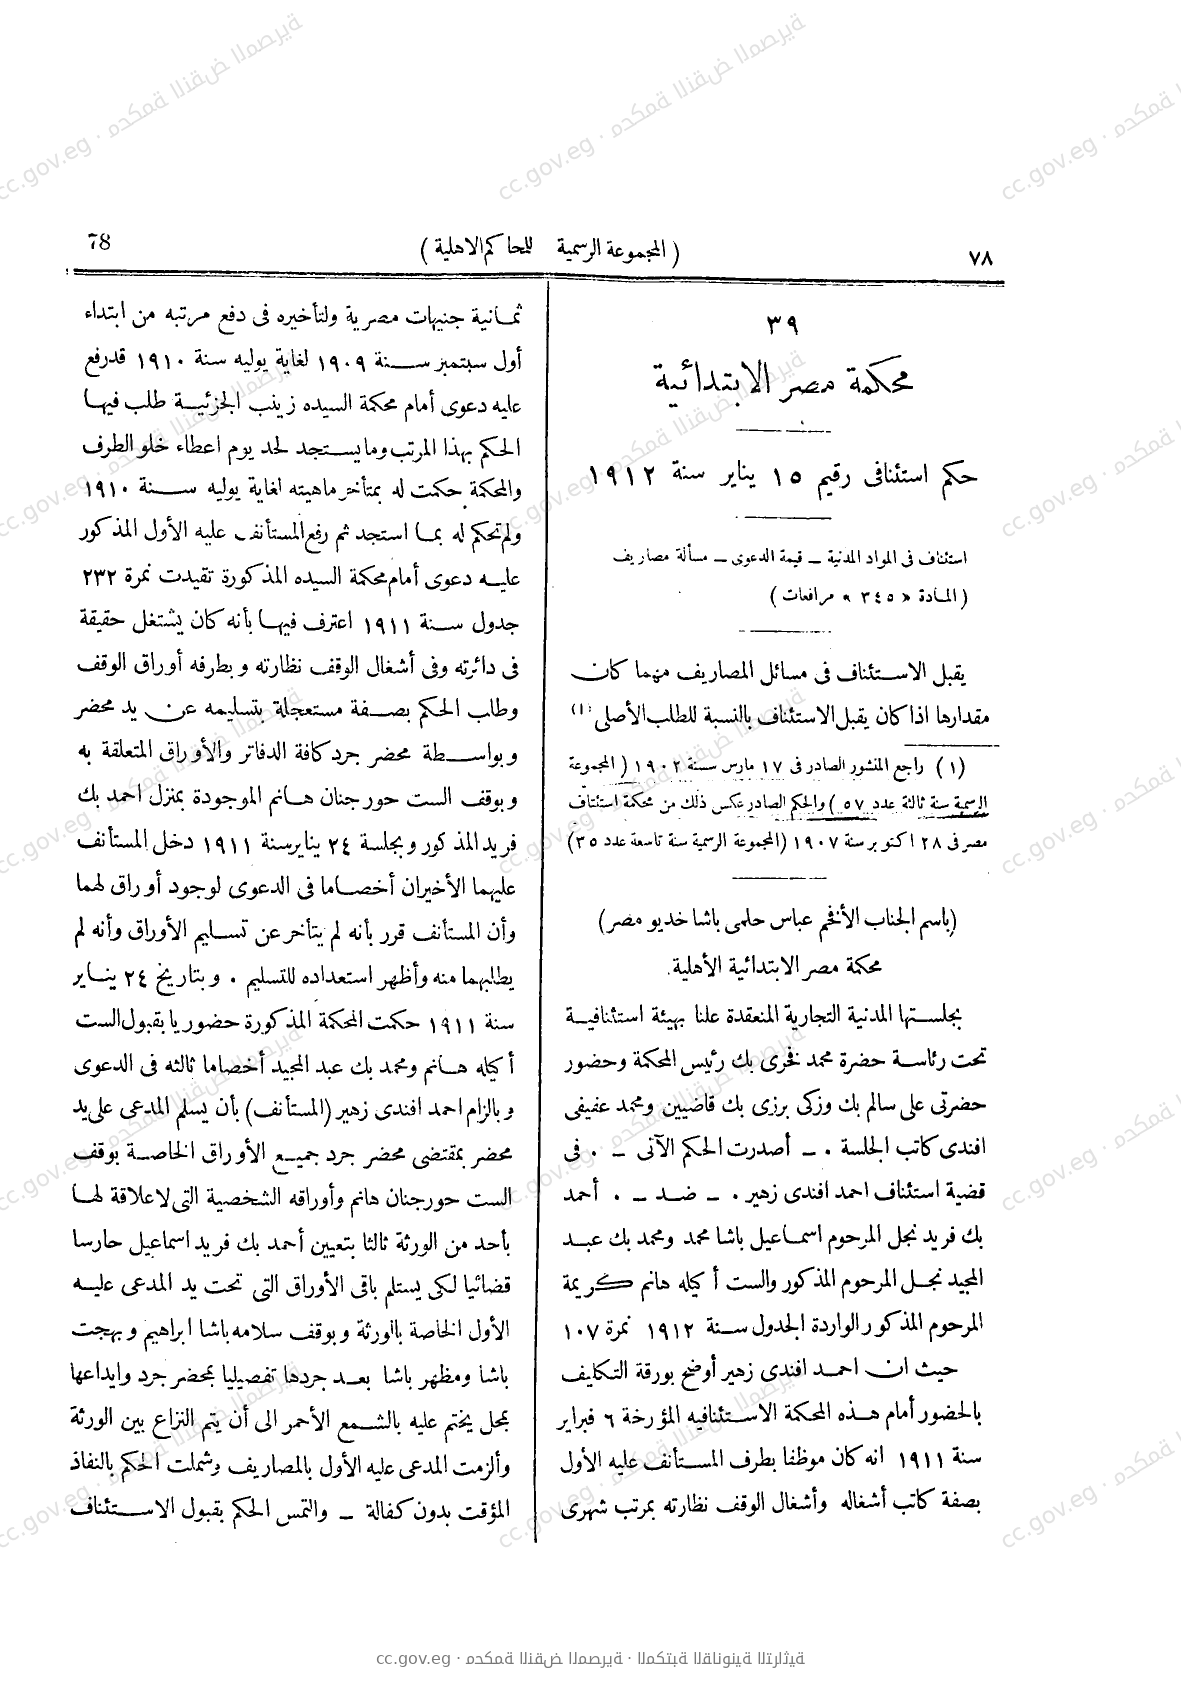 ٧٨
( المجموعة الرسمية للمحاكم الاهلية )
78
٣٩
محكمة مصر الابتدائية
حكم استئنافى رقيم ١٥ يناير سنة ١٩١٢
استئناف فى المواد المدنية – قيمة الدعوى – مسألة مصاريف
( المادة « ٣٤٥ » مرافعات )
يقبل الاستئناف فى مسائل المصاريف مهما كان
مقدارها اذا كان يقبل الاستئناف بالنسبة للطلب الأصلى (١)
(١) راجع المنشور الصادر فى ١٧ مارس سنة ١٩٠٢ ( المجموعة
الرسمية سنة ثالثة عدد ٥٧ ) والحكم الصادر عكس ذلك من محكمة استئناف
مصر فى ٢٨ اكتوبر سنة ١٩٠٧ (المجموعة الرسمية سنة تاسعة عدد ٣٥)
(باسم الجناب الأفخم عباس حلمى باشا خديو مصر)
محكمة مصر الابتدائية الأهلية
بجلستها المدنية التجارية المنعقدة علنا بهيئة استئنافية
تحت رئاسة حضرة محمد فخرى بك رئيس المحكمة وحضور
حضرتى على سالم بك وزكى برزى بك قاضيين ومحمد عفيفى
افندى كاتب الجلسة . – أصدرت الحكم الآتى – . فى
قضية استئناف احمد افندى زهير . – ضد – . أحمد
بك فريد نجل المرحوم اسماعيل باشا محمد ومحمد بك عبد
المجيد نجل المرحوم المذكور والست أكيله هانم كريمة
المرحوم المذكور الواردة الجدول سنة ١٩١٢ نمرة ١٠٧
حيث ان احمد افندى زهير أوضح بورقة التكليف
بالحضور أمام هذه المحكمة الاستئنافيه المؤرخة ٦ فبراير
سنة ١٩١١ انه كان موظفا بطرف المستأنف عليه الأول
بصفة كاتب أشغاله وأشغال الوقف نظارته بمرتب شهرى
ثمانية جنيهات مصرية ولتأخيره فى دفع مرتبه من ابتداء
أول سبتمبر سنة ١٩٠٩ لغاية يوليه سنة ١٩١٠ قد رفع
عليه دعوى أمام محكمة السيده زينب الجزئية طلب فيها
الحكم بهذا المرتب وما يستجد لحد يوم اعطاء خلو الطرف
والمحكمة حكمت له بمتأخر ماهيته لغاية يوليه سنة ١٩١٠
ولم تحكم له بما استجد ثم رفع المستأنف عليه الأول المذكور
عليه دعوى أمام محكمة السيده المذكورة تقيدت نمرة ٢٣٢
جدول سنة ١٩١١ اعترف فيها بأنه كان يشتغل حقيقة
فى دائرته وفى أشغال الوقف نظارته وبطرفه أوراق الوقف
وطلب الحكم بصفة مستعجلة بتسليمه عن يد محضر
وبواسطة محضر جرد كافة الدفاتر والأوراق المتعلقة به
وبوقف الست حورجنان هانم الموجودة بمنزل احمد بك
فريد المذكور وبجلسة ٢٤ يناير سنة ١٩١١ دخل المستأنف
عليهما الأخيران أخصاما فى الدعوى لوجود أوراق لهما
وأن المستأنف قرر بأنه لم يتأخر عن تسليم الأوراق وأنه لم
يطلبهما منه وأظهر استعداده للتسليم . وبتاريخ ٢٤ يناير
سنة ١٩١١ حكمت المحكمة المذكورة حضوريا بقبول الست
أكيله هانم ومحمد بك عبد المجيد أخصاما ثالثه فى الدعوى
وبالزام احمد افندى زهير (المستأنف) بأن يسلم المدعى على يد
محضر بمقتضى محضر جرد جميع الأوراق الخاصة بوقف
الست حورجنان هانم وأوراقه الشخصية التى لا علاقة لها
بأحد من الورثة ثالثا بتعيين أحمد بك فريد اسماعيل حارسا
قضائيا لكى يستلم باقى الأوراق التى تحت يد المدعى عليه
الأول الخاصة بالورثة وبوقف سلامه باشا ابراهيم وبهجت
باشا ومظهر باشا بعد جردها تفصيليا بمحضر جرد وايداعها
بمحل يختم عليه بالشمع الأحمر الى أن يتم النزاع بين الورثة
وألزمت المدعى عليه الأول بالمصاريف وشملت الحكم بالنفاذ
المؤقت بدون كفالة – والتمس الحكم بقبول الاستئناف
cc.gov.eg · محكمة النقض المصرية · المكتبة القانونية التراثية